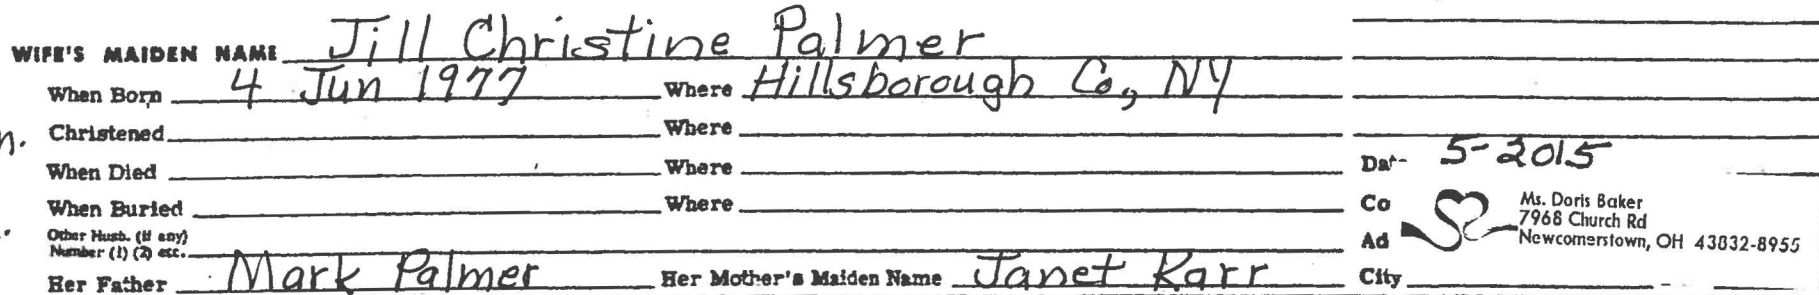 WIFE'S MAIDEN NAME Jill Christine Palmer
When Born 4 Jun 1977 Where Hillsborough Co, NY
Christened Where
When Died Where
When Buried Where
Other Husb. (if any)
Number (1) (2) etc.
Her Father Mark Palmer Her Mother's Maiden Name Janet Karr
Dat- 5-2015
Co
Ad
Ms. Doris Baker
7968 Church Rd
Newcomerstown, OH 43832-8955
City